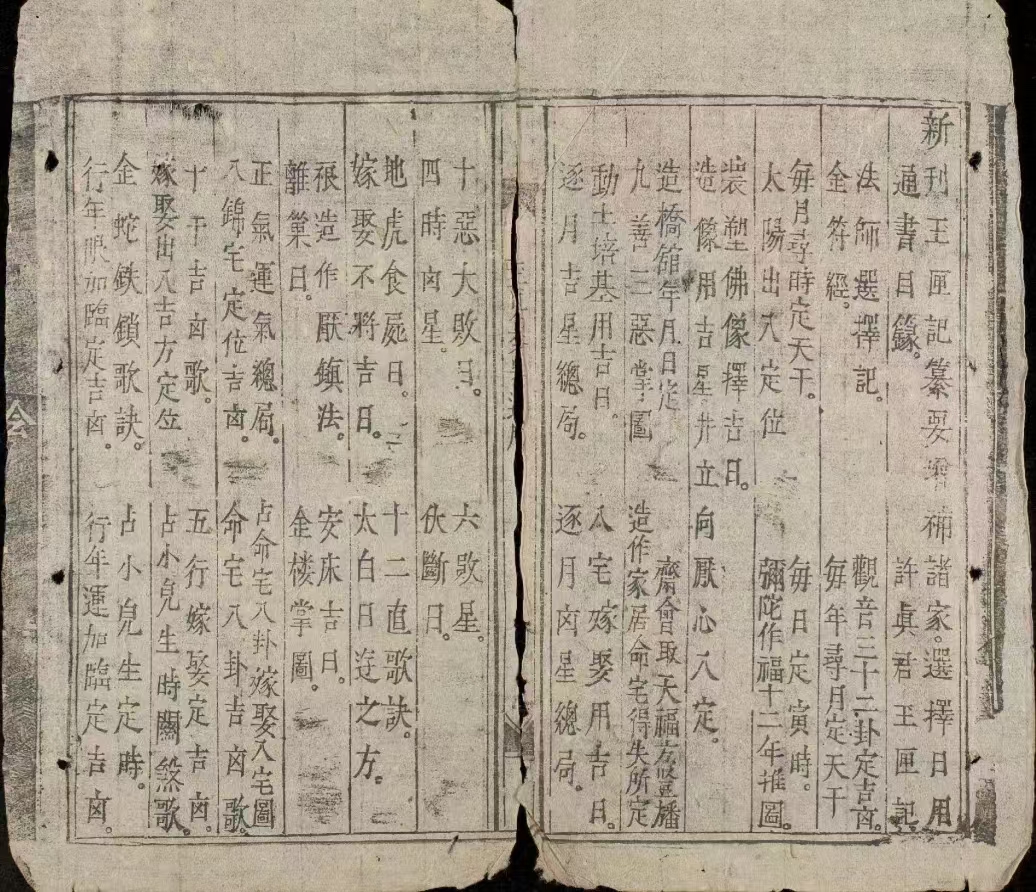 新刊玉匣記纂要增補諸家選擇日用
通書目錄 許眞君玉匣記
法師選擇記 觀音三十二卦定吉凶
金符經 每年尋月定天干
每月尋時定天干 每日定寅時
太陽出入定位 彌陀作福十二年推圖
裝塑佛像擇吉日
造像用吉星并立向厭心入定
造橋舘年月日定 齋會取天福方豎旛
九善二惡掌圖 造作家居命宅得失所定
動土培基用吉日 入宅嫁娶用吉日
逐月吉星總局 逐月凶星總局
十惡大敗日 六敗星
四時凶星 伏斷日
地虎食屍日 十二直歌訣
嫁娶不將吉日 太白日逰之方
禳造作厭鎮法 安床吉日
離巢日 金楼掌圖
正氣運氣總局 占命宅八卦嫁娶入宅圖
八錦宅定位吉凶 命宅八卦吉凶歌
十干吉凶歌 五行嫁娶定吉凶
嫁娶出入吉方定位 占小兒生時關煞歌
金蛇鉄鎖歌訣 占小兒生定時
行年眼加臨定吉凶 行年運加臨定吉凶